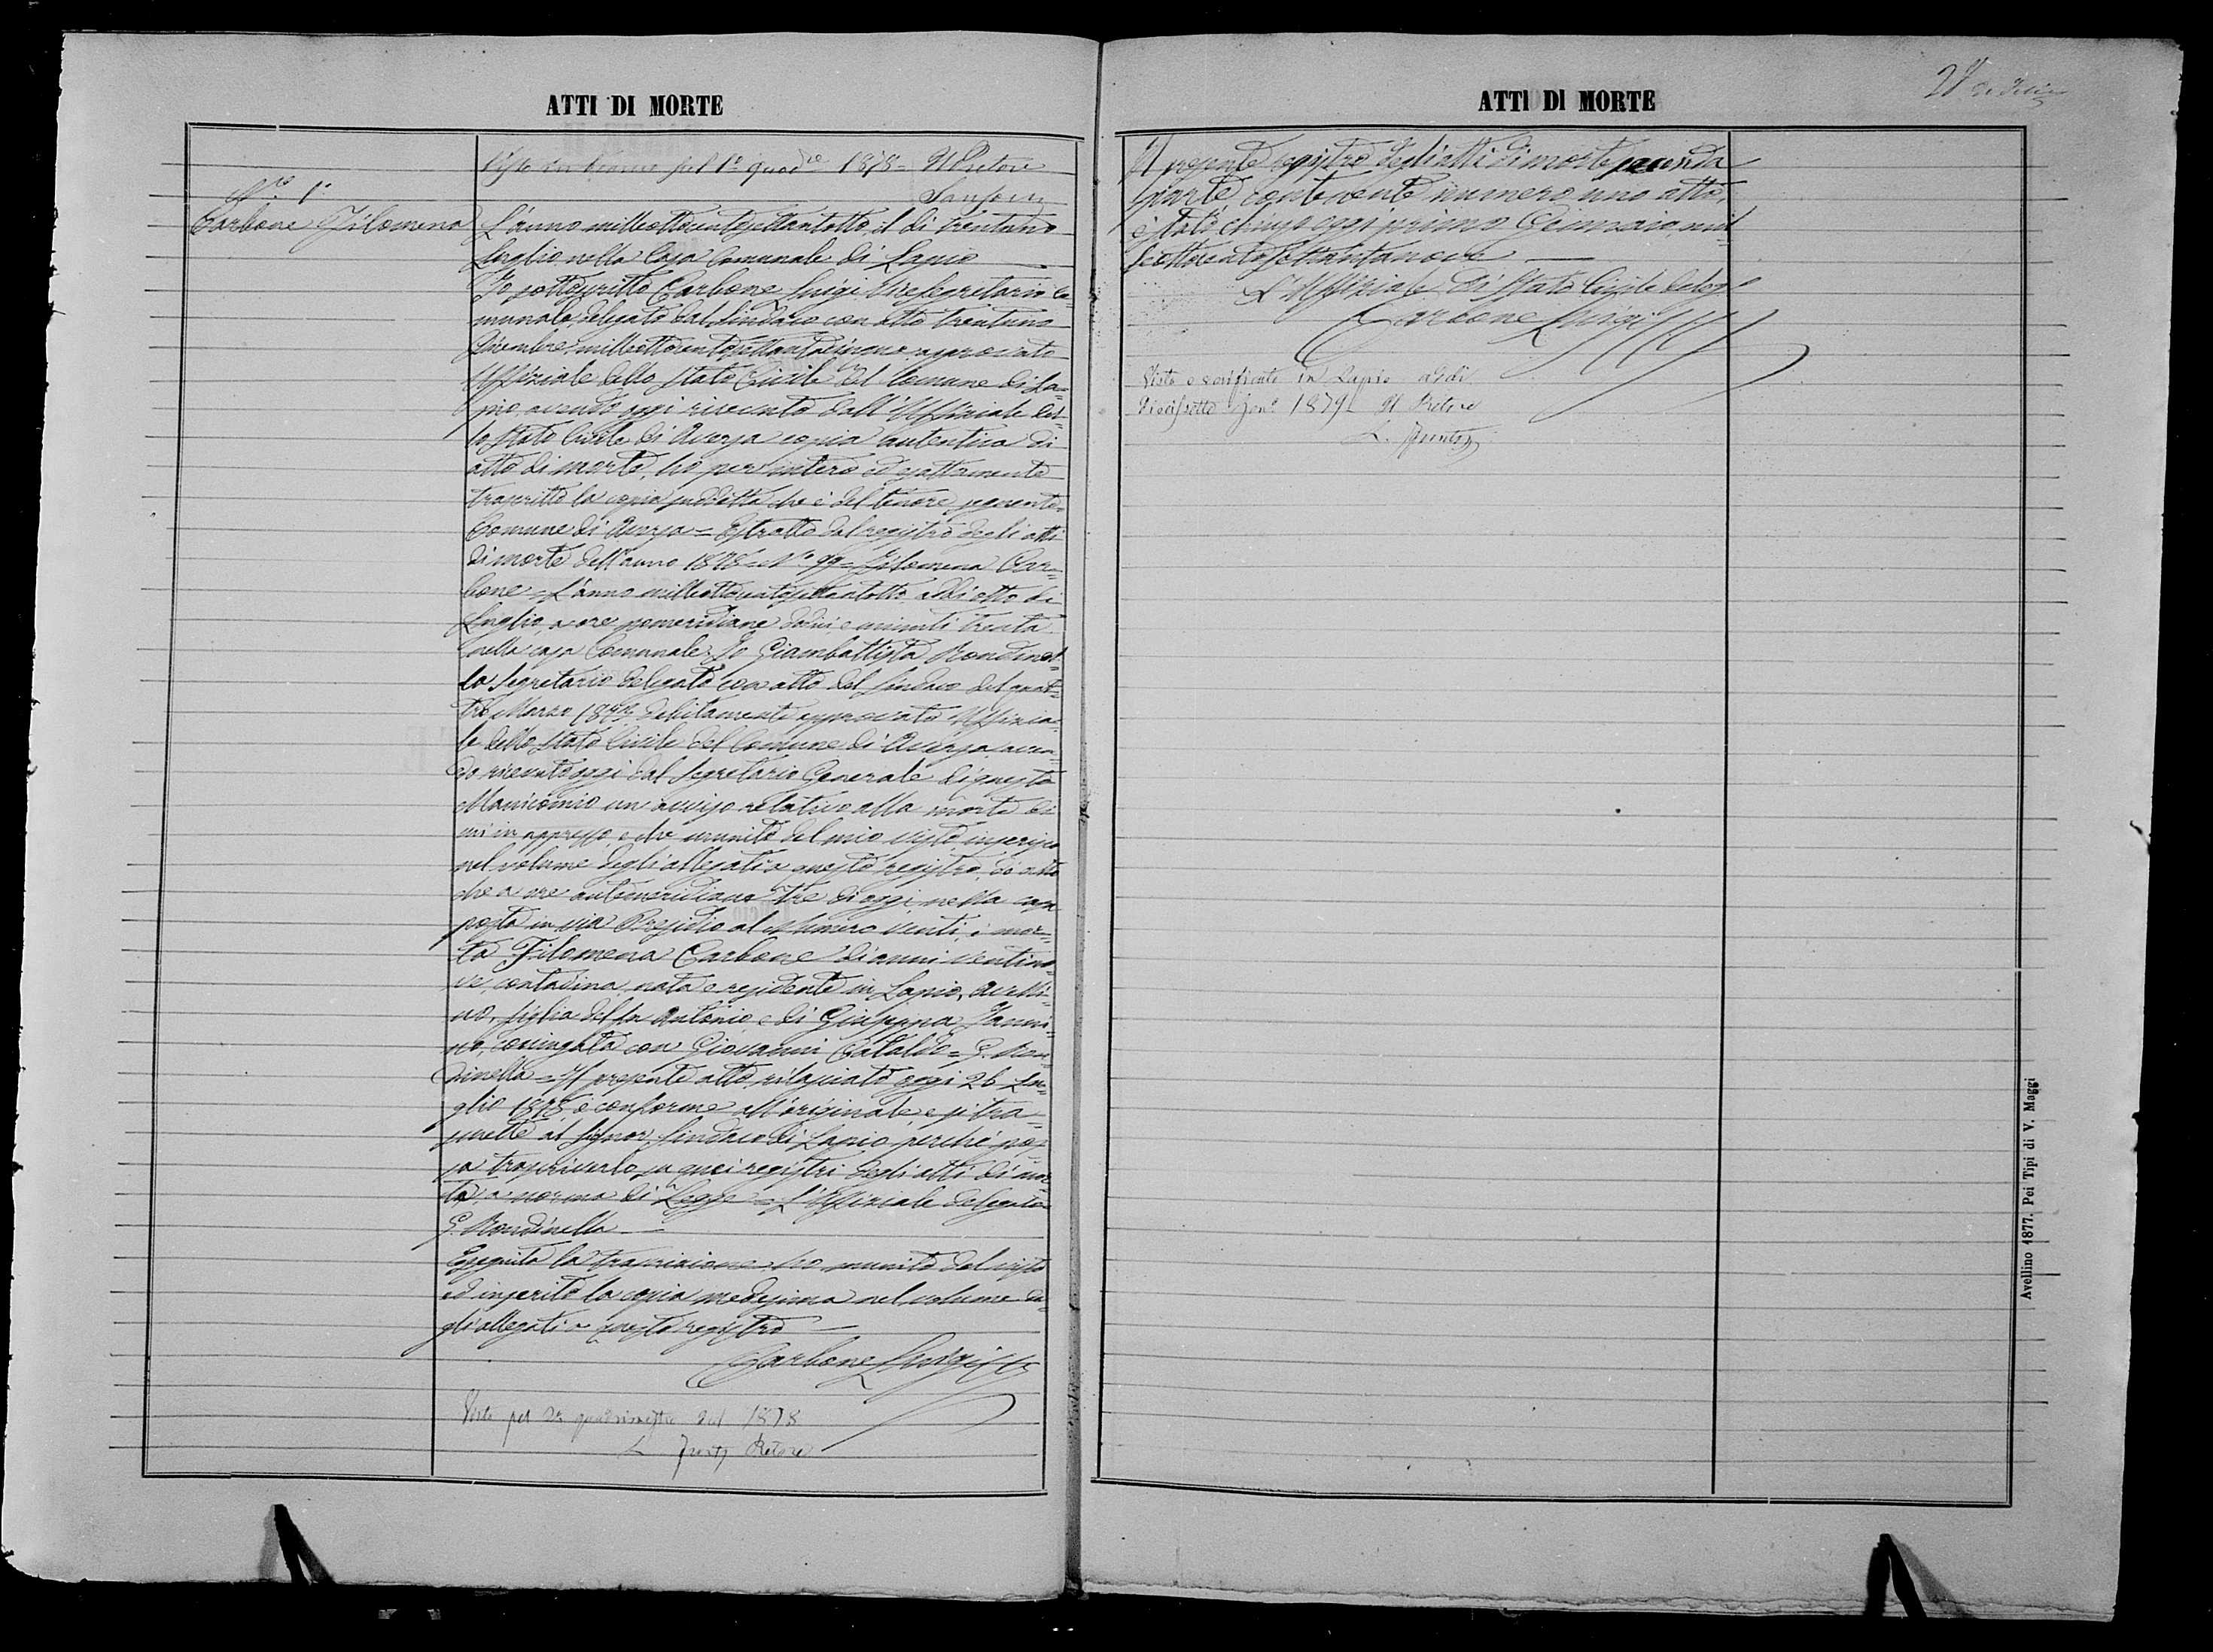 ATTI DI MORTE
pel 1º quad.re 1878 = Il Pretore
N.ro 1º
Carbone Filomena
L'anno milleottocentosettantotto, il dì trentuno
Luglio nella Casa Comunale di Lapio
Io sottoscritto Carbone Luigi Vicesegretario Co=
munale, delegato dal Sindaco con atto trentuno
Dicembre milleottocentosettantacinque approvato
Uffiziale dello Stato Civile del Comune di La=
pio avendo oggi ricevuto dall'Uffiziale del=
lo Stato Civile di Aversa copia autentica di
atto di morte, ho per intero ed esattamente
trascritto la copia suddetta che è del tenore seguente=
Comune di Aversa = Estratto dal registro degli atti
di morte dell'anno 1878 = Nº 99 = Filomena Car=
bone = L'anno milleottocentosettantotto, addì otto di
Luglio, a ore pomeridiane dodici e minuti trenta
nella casa Comunale. Io Giambattista Rondinel=
la Segretario delegato con atto del Sindaco del quat=
tro Marzo debitamente approvato Uffizia=
le dello Stato Civile del Comune di Aversa, aven=
do ricevuto oggi dal Segretario Generale di questo
Manicomio un avviso relativo alla morte di
cui in appresso, e che munito del mio visto, inserisco
nel volume degli allegati a questo registro, do atto
che a ore antemeridiane tre di oggi, nella casa
posta in via al Numero venti, è mor=
ta Filomena Carbone di anni ventino=
ve, contadina, nata e residente in Lapio, Avelli=
no, figlia del fu Antonio, e di Giuseppa
coniugata con Giovanni Cataldo = G. Ron=
dinella = Il presente atto rilasciato oggi 26 Lu=
glio 1878 è conforme all'originale, e si tra=
smette al Signor Sindaco di Lapio perché pos=
sa trascriverlo su quei registri degli atti di mor=
te, a norma di Legge = L'Uffiziale delegato=
G. Rondinella
Eseguita la trascrizione ho munito del visto
ed inserito la copia medesima nel volume de=
gli allegati a questo registro
Carbone Luigi
Visto pel 2º quadrimestre del 1878
L. Pretore
ATTI DI MORTE
Il presente registro degli atti di morte seconda
parte contenente numero uno atto,
è stato chiuso oggi primo Gennaio mil=
leottocentosettantanove
L'Uffiziale di Stato Civile deleg.º
Carbone Luigi
Visto e verificato in Lapio addì
diciassette Gen.º 1879 Il Pretore
L.
Avellino 1877. Pei Tipi di V. Maggi